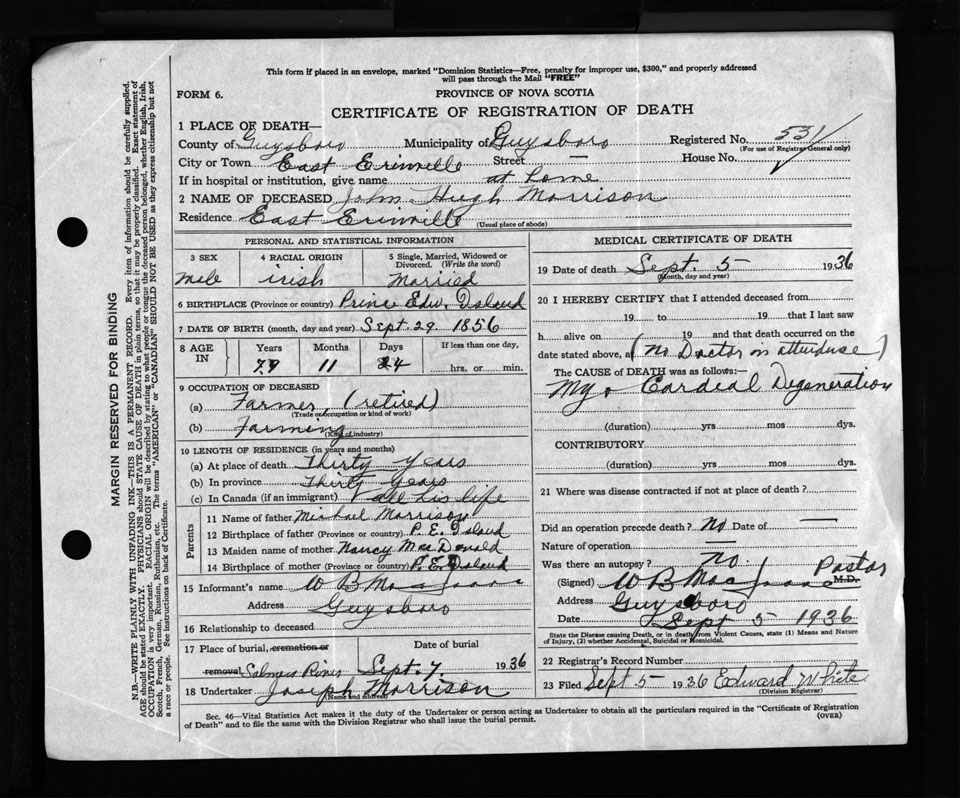 This form if placed in an envelope, marked "Dominion Statistics—Free, penalty for improper use, $300," and properly addressed
will pass through the Mail "FREE"
FORM 6.
PROVINCE OF NOVA SCOTIA
CERTIFICATE OF REGISTRATION OF DEATH
1 PLACE OF DEATH—
County of Guysboro Municipality of Guysboro Registered No. 531
(For use of Registrar General only)
City or Town East Erinville Street — House No.
If in hospital or institution, give name at home
2 NAME OF DECEASED John Hugh Morrison
Residence East Erinville
(Usual place of abode)
PERSONAL AND STATISTICAL INFORMATION
3 SEX 4 RACIAL ORIGIN 5 Single, Married, Widowed or
Divorced. (Write the word)
male irish Married
6 BIRTHPLACE (Province or country) Prince Edw. Island
7 DATE OF BIRTH (month, day and year) Sept 29. 1856
8 AGE IN Years Months Days If less than one day,
79 11 24 hrs. or min.
9 OCCUPATION OF DECEASED
(a) Farmer, (retired)
(Trade or occupation or kind of work)
(b) Farming
(Kind of industry)
10 LENGTH OF RESIDENCE (in years and months)
(a) At place of death Thirty Years
(b) In province Thirty Years
(c) In Canada (if an immigrant) all his life
Parents
11 Name of father Michael Morrison
12 Birthplace of father (Province or country) P. E. Island
13 Maiden name of mother Nancy MacDonald
14 Birthplace of mother (Province or country) P. E. Island
15 Informant's name W B MacIsaac
Address Guysboro
16 Relationship to deceased
17 Place of burial, cremation or Date of burial
removal Salmon River Sept. 7 1936
18 Undertaker Joseph Morrison
(Name and address)
MEDICAL CERTIFICATE OF DEATH
19 Date of death Sept. 5- 1936
(Month, day and year)
20 I HEREBY CERTIFY that I attended deceased from
19 to 19 that I last saw
h alive on 19 and that death occurred on the
date stated above, at (no Doctor in attenduse)
The CAUSE of DEATH was as follows:—
Myo Cardeal Degeneration
(duration) yrs mos dys.
CONTRIBUTORY
(duration) yrs mos dys.
21 Where was disease contracted if not at place of death?
Did an operation precede death? No Date of —
Nature of operation —
Was there an autopsy? no. Pastor
(Signed) W B MacIsaac M.D.
Address Guysboro
Date Sept 5 1936
State the Disease causing Death, or in death from Violent Causes, state (1) Means and Nature
of Injury, (2) whether Accidental, Suicidal or Homicidal.
22 Registrar's Record Number
23 Filed Sept 5- 1936 Edward White
(Division Registrar)
Sec. 46—Vital Statistics Act makes it the duty of the Undertaker or person acting as Undertaker to obtain all the particulars required in the "Certificate of Registration
of Death" and to file the same with the Division Registrar who shall issue the burial permit.
(OVER)
MARGIN RESERVED FOR BINDING
N.B.—WRITE PLAINLY WITH UNFADING INK—THIS IS A PERMANENT RECORD. Every item of information should be carefully supplied.
AGE should be stated EXACTLY. PHYSICIANS should STATE CAUSE OF DEATH in plain terms, so that it may be properly classified. Exact statement of
OCCUPATION is very important. RACIAL ORIGIN will be described by stating to what people or tongue the deceased person belonged, whether English, Irish,
Scotch, French, German, Russian, Ruthenian, etc. The terms "AMERICAN" or "CANADIAN" SHOULD NOT BE USED as they express citizenship but not
a race or people. See instructions on back of Certificate.